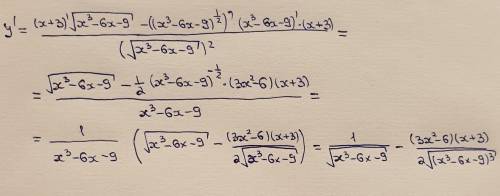 y' = ((x+3)'√(x³-6x-9) - ((x³-6x-9)^(1/2))' (x³-6x-9)'·(x+3)) / (√(x³-6x-9))² =
= (√(x³-6x-9) - 1/2 (x³-6x-9)^(-1/2)·(3x²-6)(x+3)) / (x³-6x-9) =
= 1/(x³-6x-9) (√(x³-6x-9) - (3x²-6)(x+3)/(2√(x³-6x-9))) = 1/√(x³-6x-9) - (3x²-6)(x+3)/(2√((x³-6x-9)³))